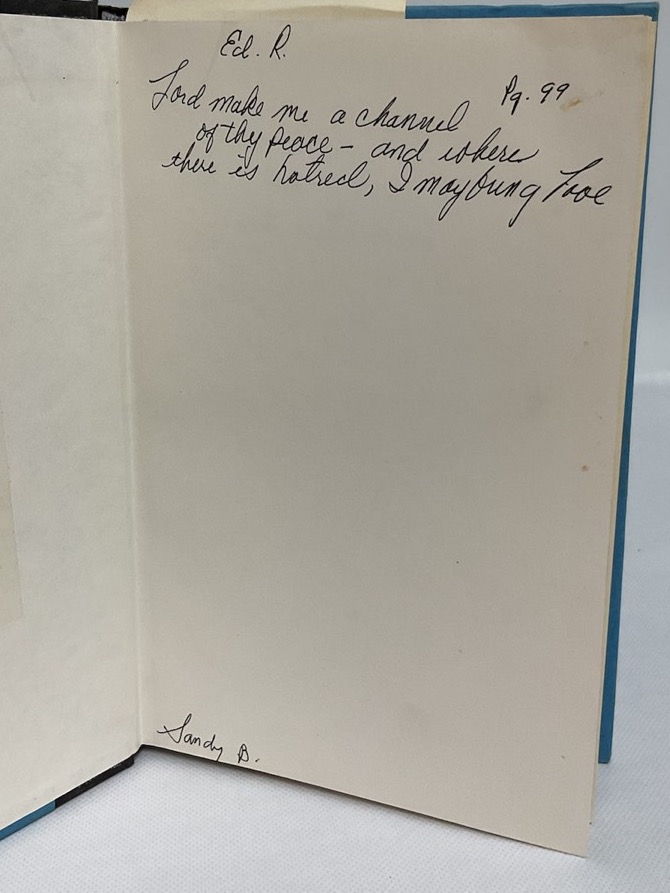 Ed. R.
Pg. 99
Lord make me a channel
of thy peace - and where
there is hatred, I may bring Love
Sandy B.